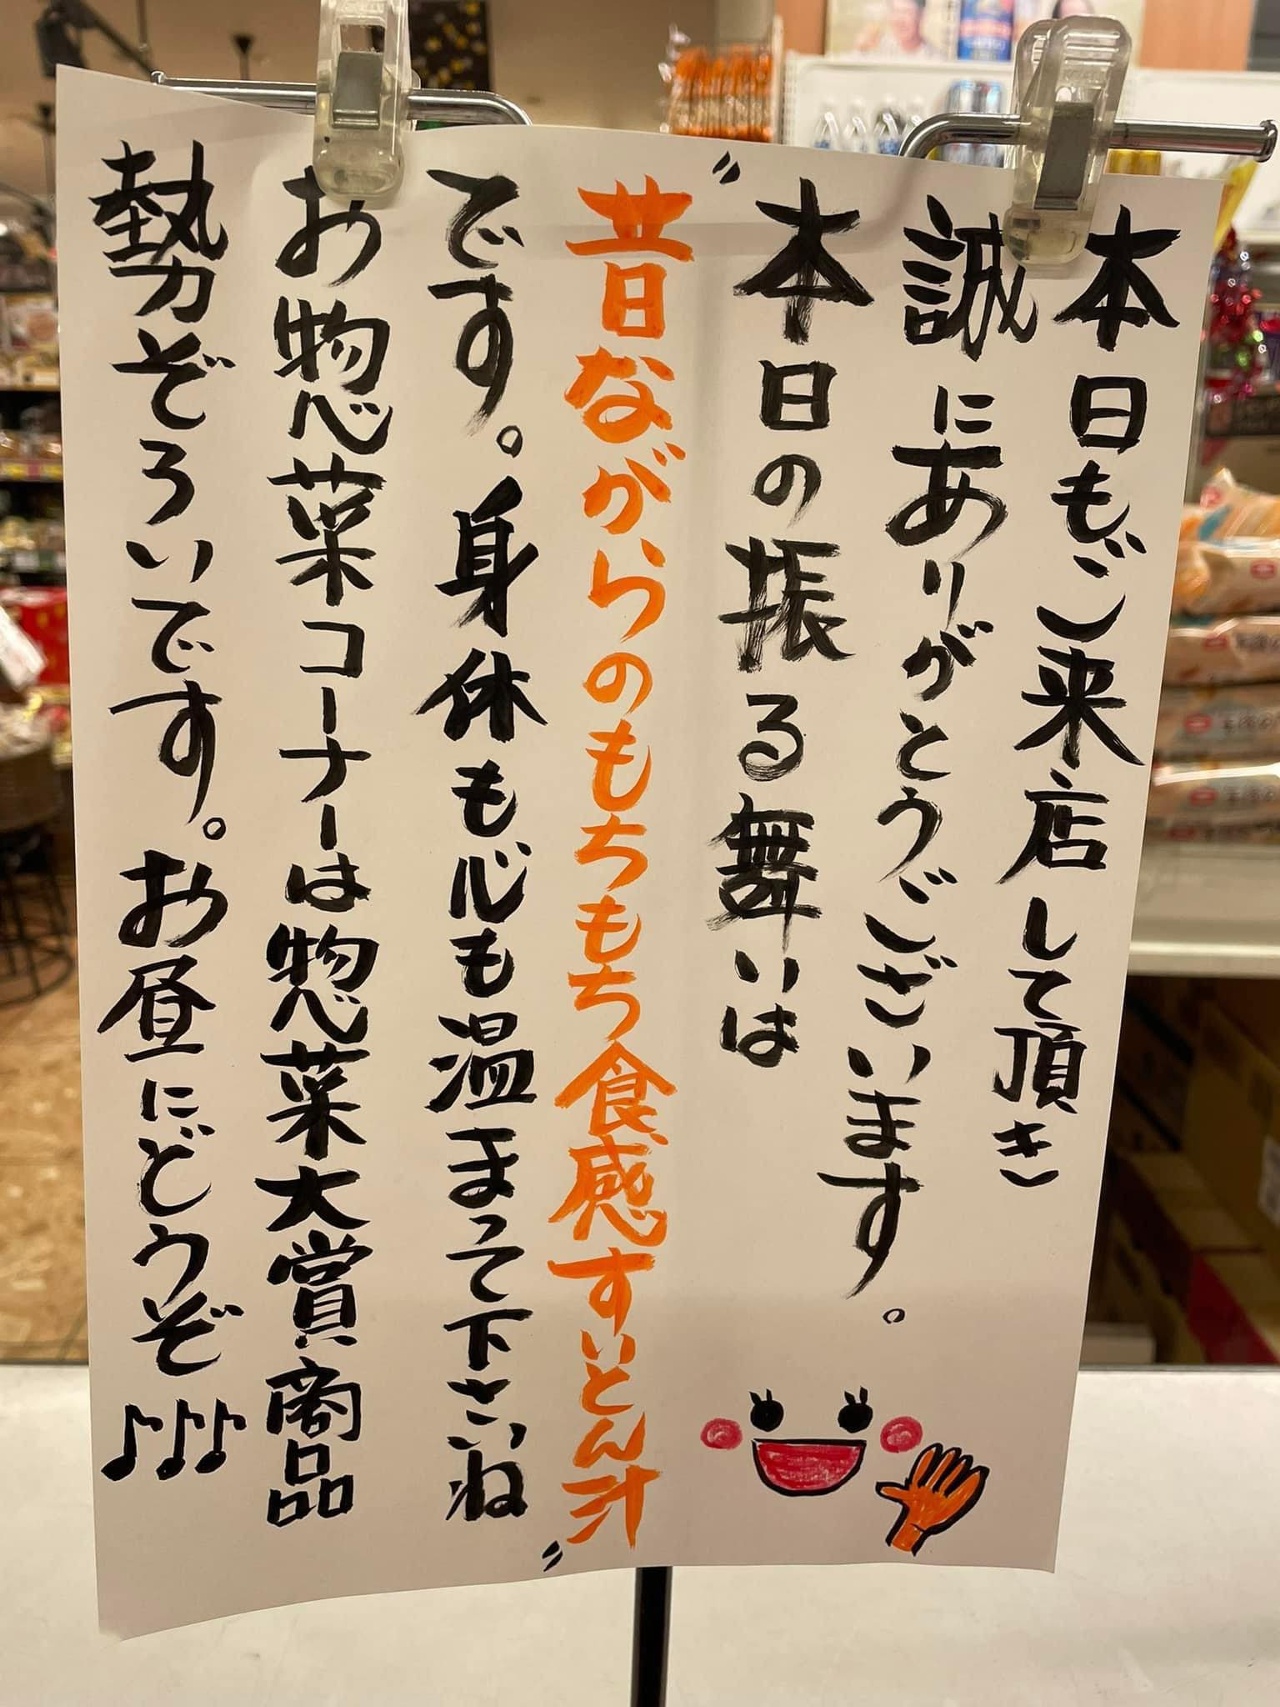 本日もご来店して頂き
誠にありがとうございます。
本日の振る舞いは
〝昔ながらのもちもち食感すいとん汁〟
です。身体も心も温まって下さいね
お惣菜コーナーは惣菜大賞商品
勢ぞろいです。お昼にどうぞ♪♪♪